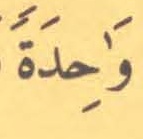 وَٰحِدَةً